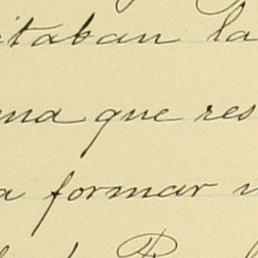 itaban la
na que res
a formar